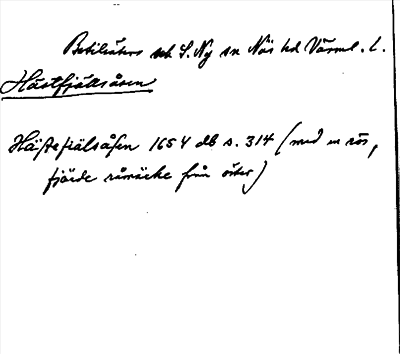 och S. Ny sn Näs hd Värml. l.
Hästfjällsåsen
Hästefiälsåsen 1654 db s. 314 (med en rös,
fjärde råmärke från öster)